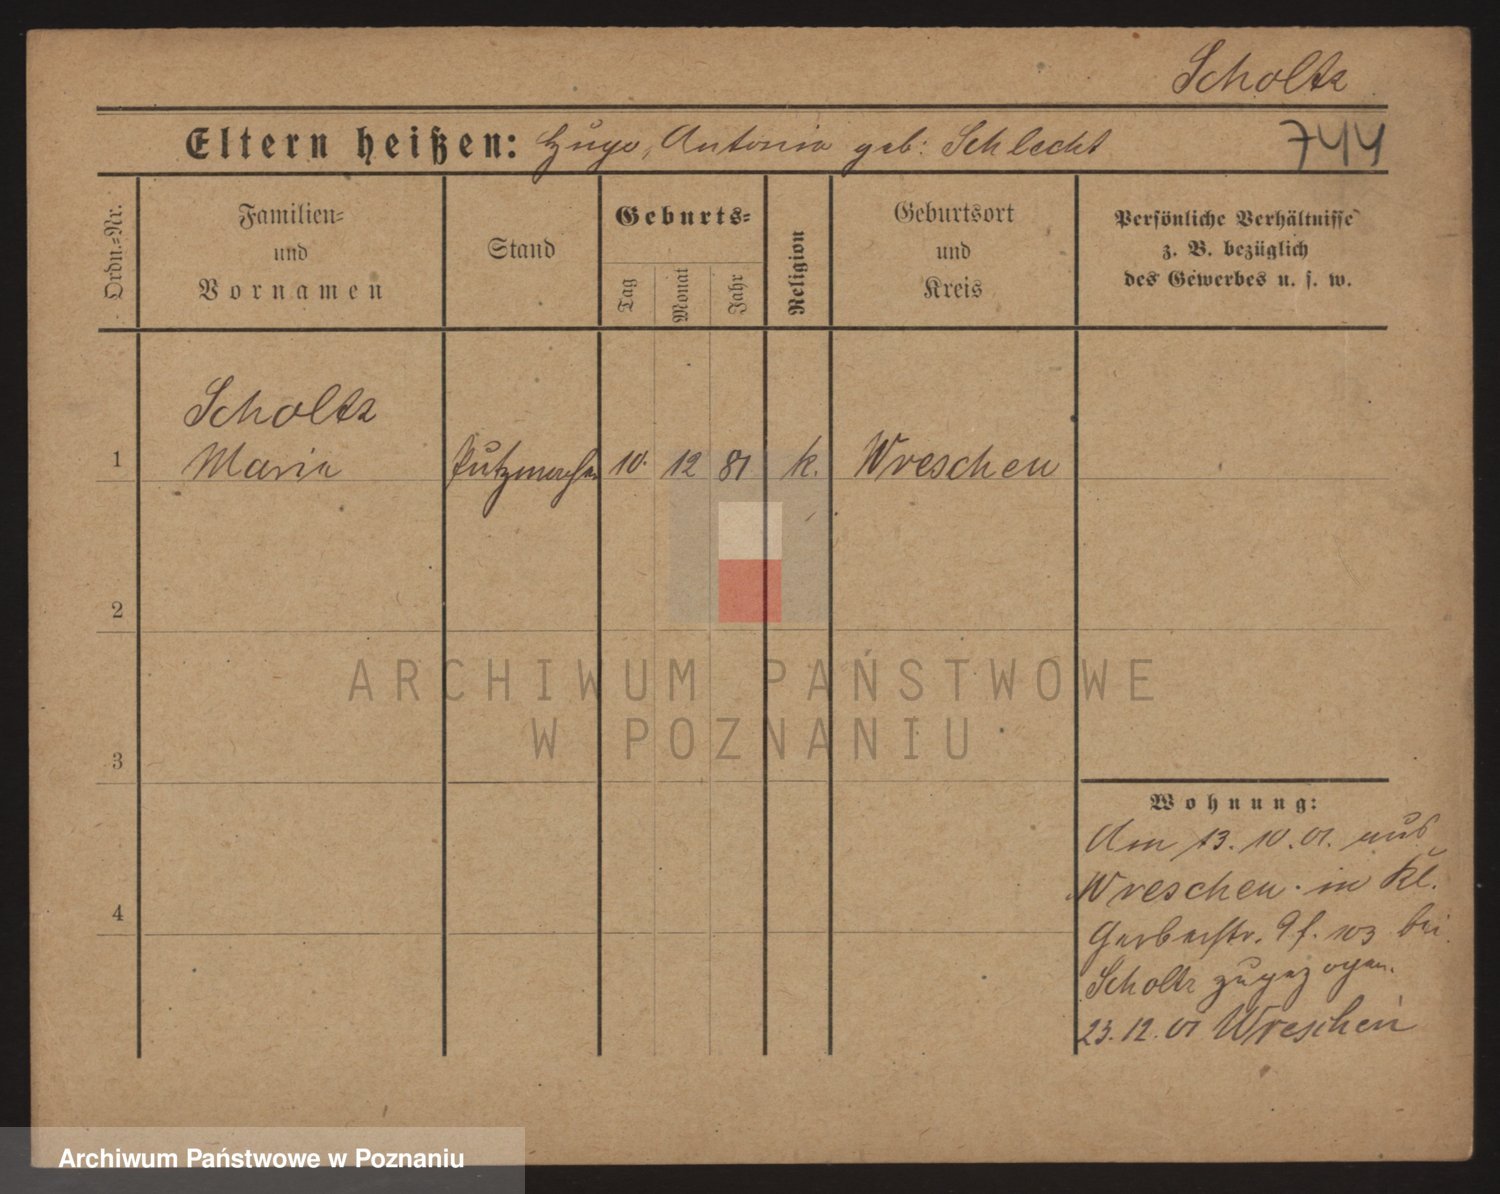 Scholtz
Eltern heißen: Hugo, Antonia geb: Schlecht
744
Ordn.=Nr.
Familien=
und
Vornamen
Stand
Geburts=
Tag
Monat
Jahr
Religion
Geburtsort
und
Kreis
Persönliche Verhältnisse
z. B. bezüglich
des Gewerbes u. s. w.
Scholtz
1 Maria Putzmacher 10. 12 81 k. Wreschen
2
3
4
Wohnung:
Am 13.10.01. aus
Wreschen in Kl.
Gerberstr. 9 f. 103 bei
Scholtz zugezogen.
23.12.01 Wreschen
ARCHIWUM PAŃSTWOWE
W POZNANIU
Archiwum Państwowe w Poznaniu